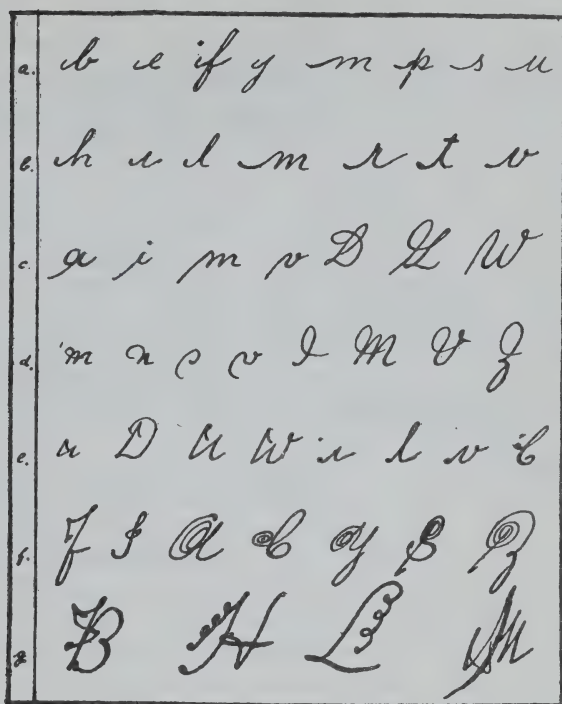 a. b e if y m p s u
b. h u l m r t v
c. a i m v D L W
d. m n c v I M V Z
e. u D U W i l v C
f. F I A C Y S Z
g. B H L M